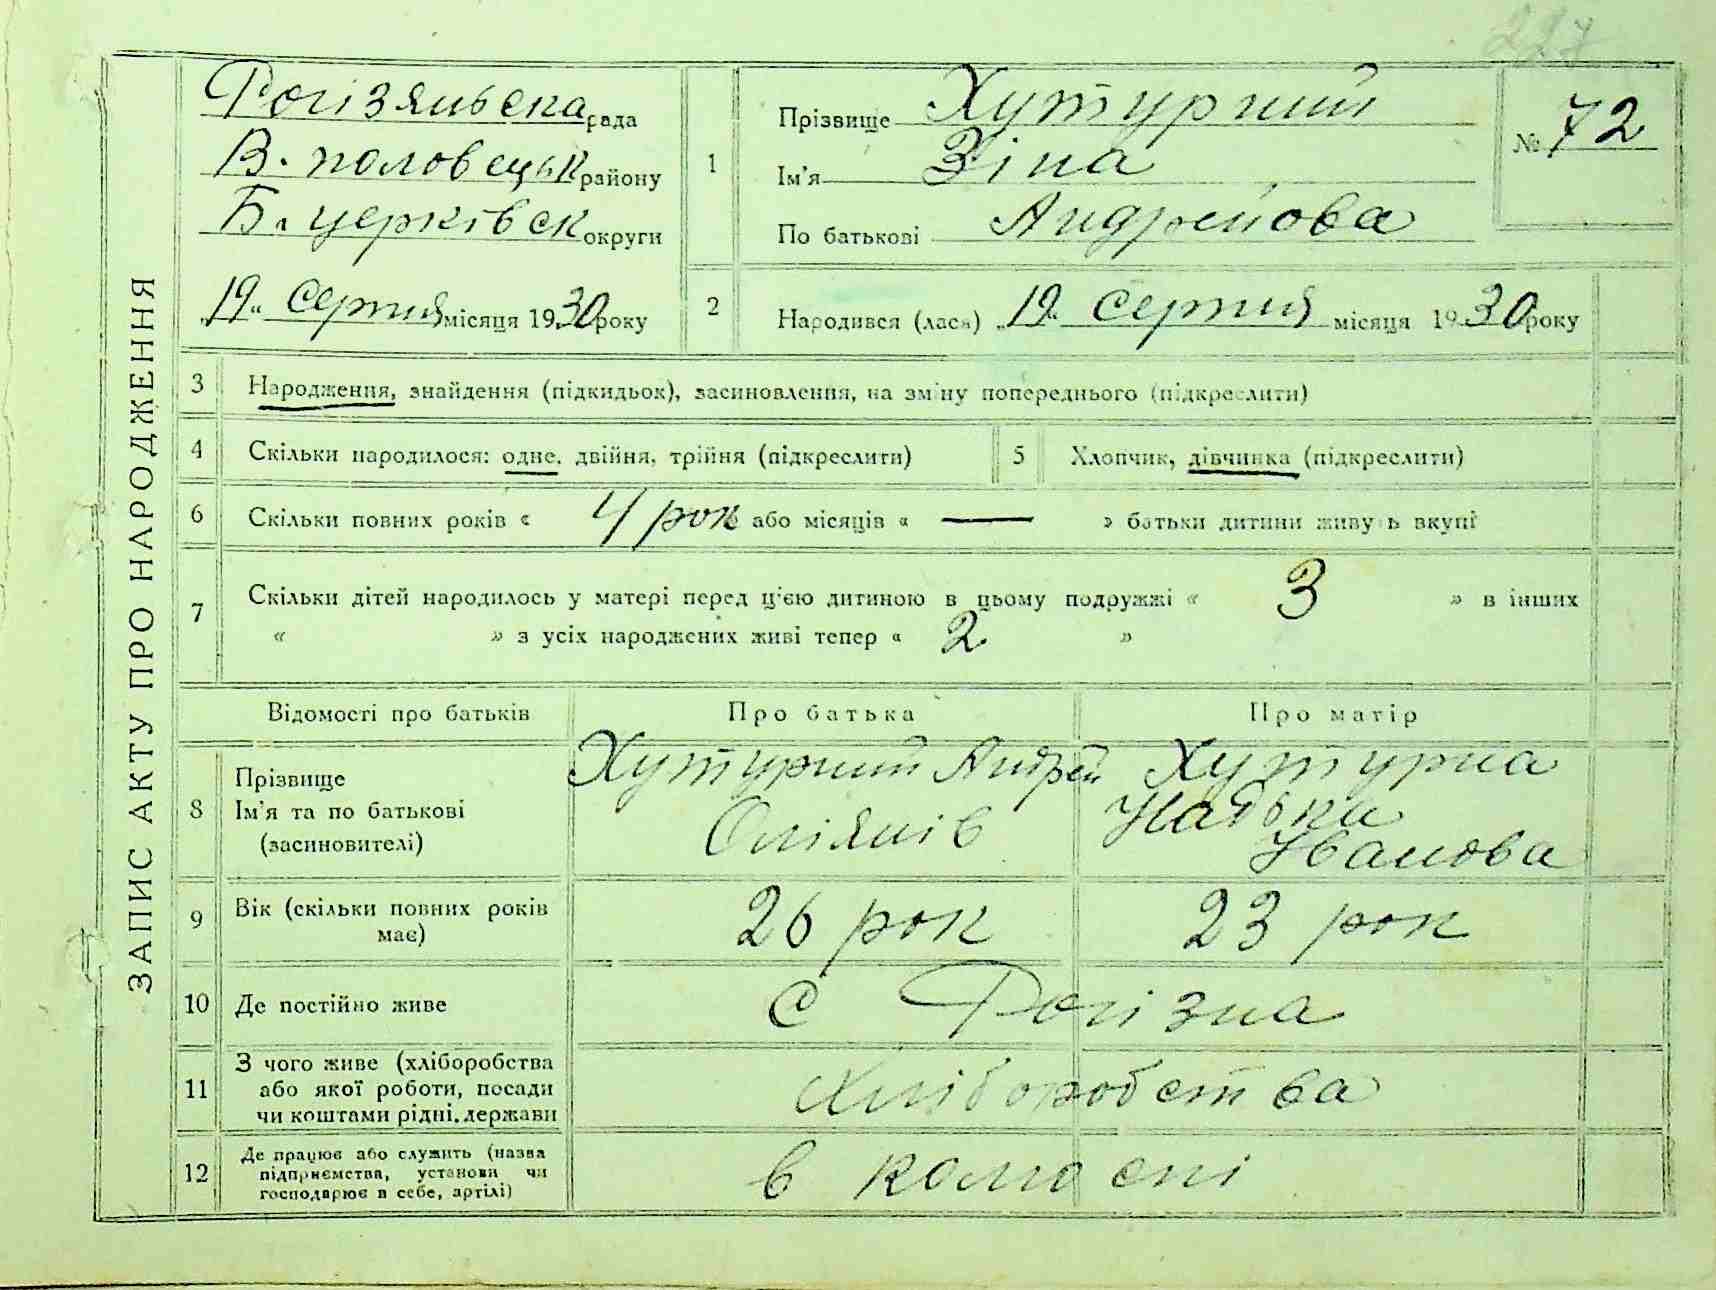 227
ЗАПИС АКТУ ПРО НАРОДЖЕННЯ
Рогізянська рада
В. половецьк району
Б. церківск округи
„19“ Серпня місяця 1930 року
1
Прізвище Хутурний
Ім'я Зіна
По батькові Андрейова
№ 72
2
Народився (лася) „19“ Серпня місяця 1930 року
3 Народження, знайдення (підкидьок), засиновлення, на зміну попереднього (підкреслити)
4 Скільки народилося: одне, двійня, трійня (підкреслити)
5 Хлопчик, дівчинка (підкреслити)
6 Скільки повних років « 4 рок або місяців « — » батьки дитини живуть вкупі
7 Скільки дітей народилось у матері перед ц'єю дитиною в цьому подружжі « 3 » в інших
« » з усіх народжених живі тепер « 2 »
Відомості про батьків Про батька Про матір
8
Прізвище
Ім'я та по батькові
(засиновителі)
Хутурний Андрей
Хутурна
Надька
Иванова
9
Вік (скільки повних років
має)
26 рок
23 рок
10 Де постійно живе
С Рогізна
11
З чого живе (хліборобства
або якої роботи, посади
чи коштами рідні, держави
Хліборобства
12
Де працює або служить (назва
підприємства, установи чи
господарює в себе, артілі)
в